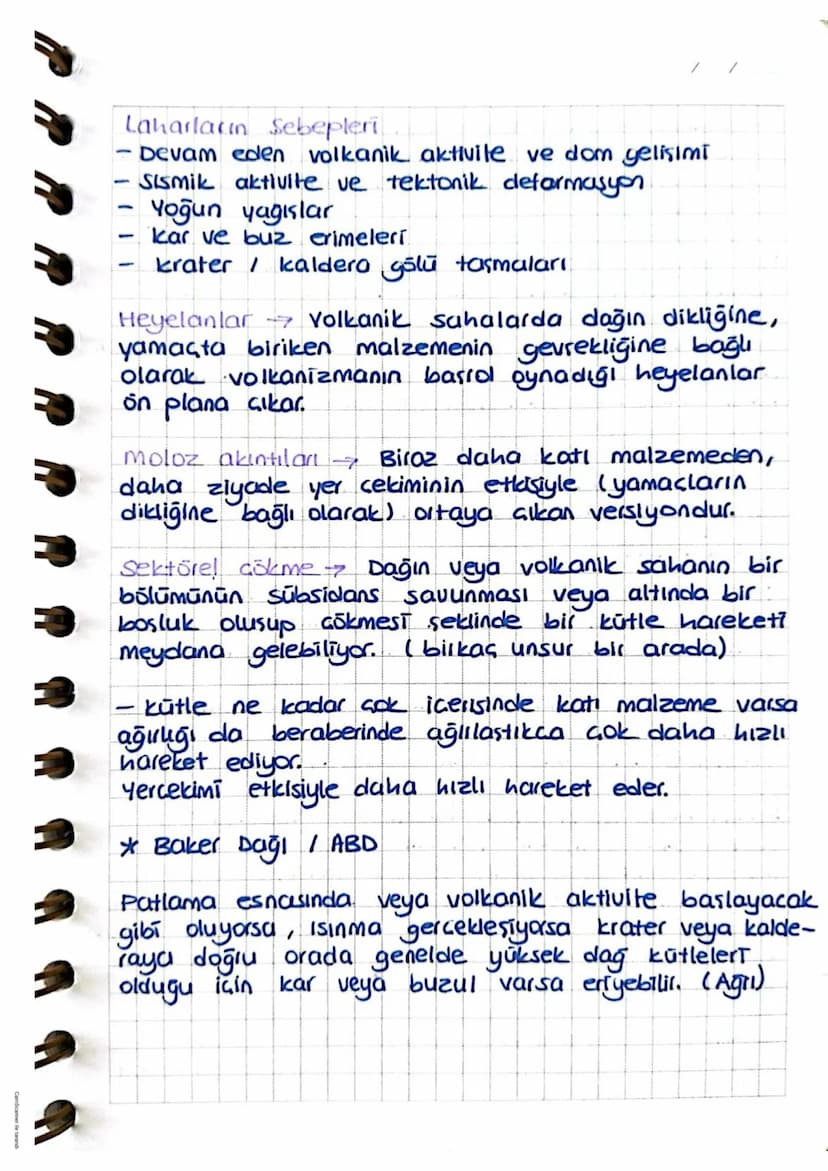 / /
Laharların Sebepleri
- Devam eden volkanik aktivite ve dom gelişimi
- Sismik aktivite ve tektonik deformasyon
- Yoğun yağışlar
- Kar ve buz erimeleri
- Krater / kaldera gölü taşmaları
Heyelanlar → Volkanik sahalarda dağın dikliğine,
yamaçta biriken malzemenin gevrekliğine bağlı
olarak volkanizmanın başrol oynadığı heyelanlar
ön plana çıkar.
Moloz akıntıları → Biraz daha katı malzemeden,
daha ziyade yer çekiminin etkisiyle (yamaçların
dikliğine bağlı olarak) ortaya çıkan versiyondur.
Sektörel çökme → Dağın veya volkanik sahanın bir
bölümünün sübsidans savunması veya altında bir
boşluk oluşup çökmesi şeklinde bir kütle hareketi
meydana gelebiliyor. (birkaç unsur bir arada)
- Kütle ne kadar çok içerisinde katı malzeme varsa
ağırlığı da beraberinde ağırlaştıkca çok daha hızlı
hareket ediyor.
Yerçekimi etkisiyle daha hızlı hareket eder.
* Baker Dağı / ABD
Patlama esnasında veya volkanik aktivite başlayacak
gibi oluyorsa, ısınma gerçekleşiyorsa krater veya kalde-
raya doğru orada genelde yüksek dağ kütleleri
olduğu için kar veya buzul varsa eriyebilir. (Ağrı)
CamScanner ile tarandı